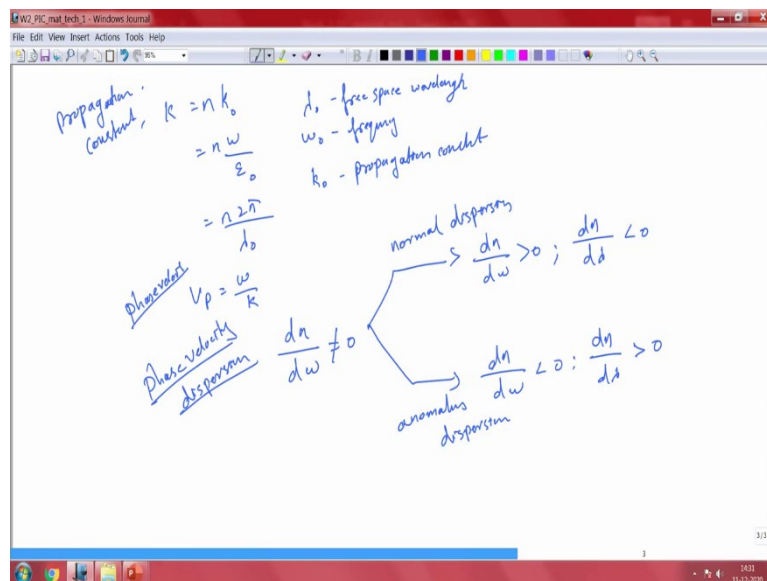 W2_PIC_mat_tech_1 - Windows Journal
File Edit View Insert Actions Tools Help
propagation
constent, k = n k₀
= n ω/ε₀
= n 2π/λ₀
λ₀ - free space wavelength
ω₀ - frequny
k₀ - propagation constt
phase veloct
Vp = ω/k
phase velocity
dispersion
dn/dω ≠ 0
normal dispersion
dn/dω > 0 ; dn/dλ < 0
dn/dω < 0 : dn/dλ > 0
anomalus
dispersion
3/3
3
14:31
11-12-2020